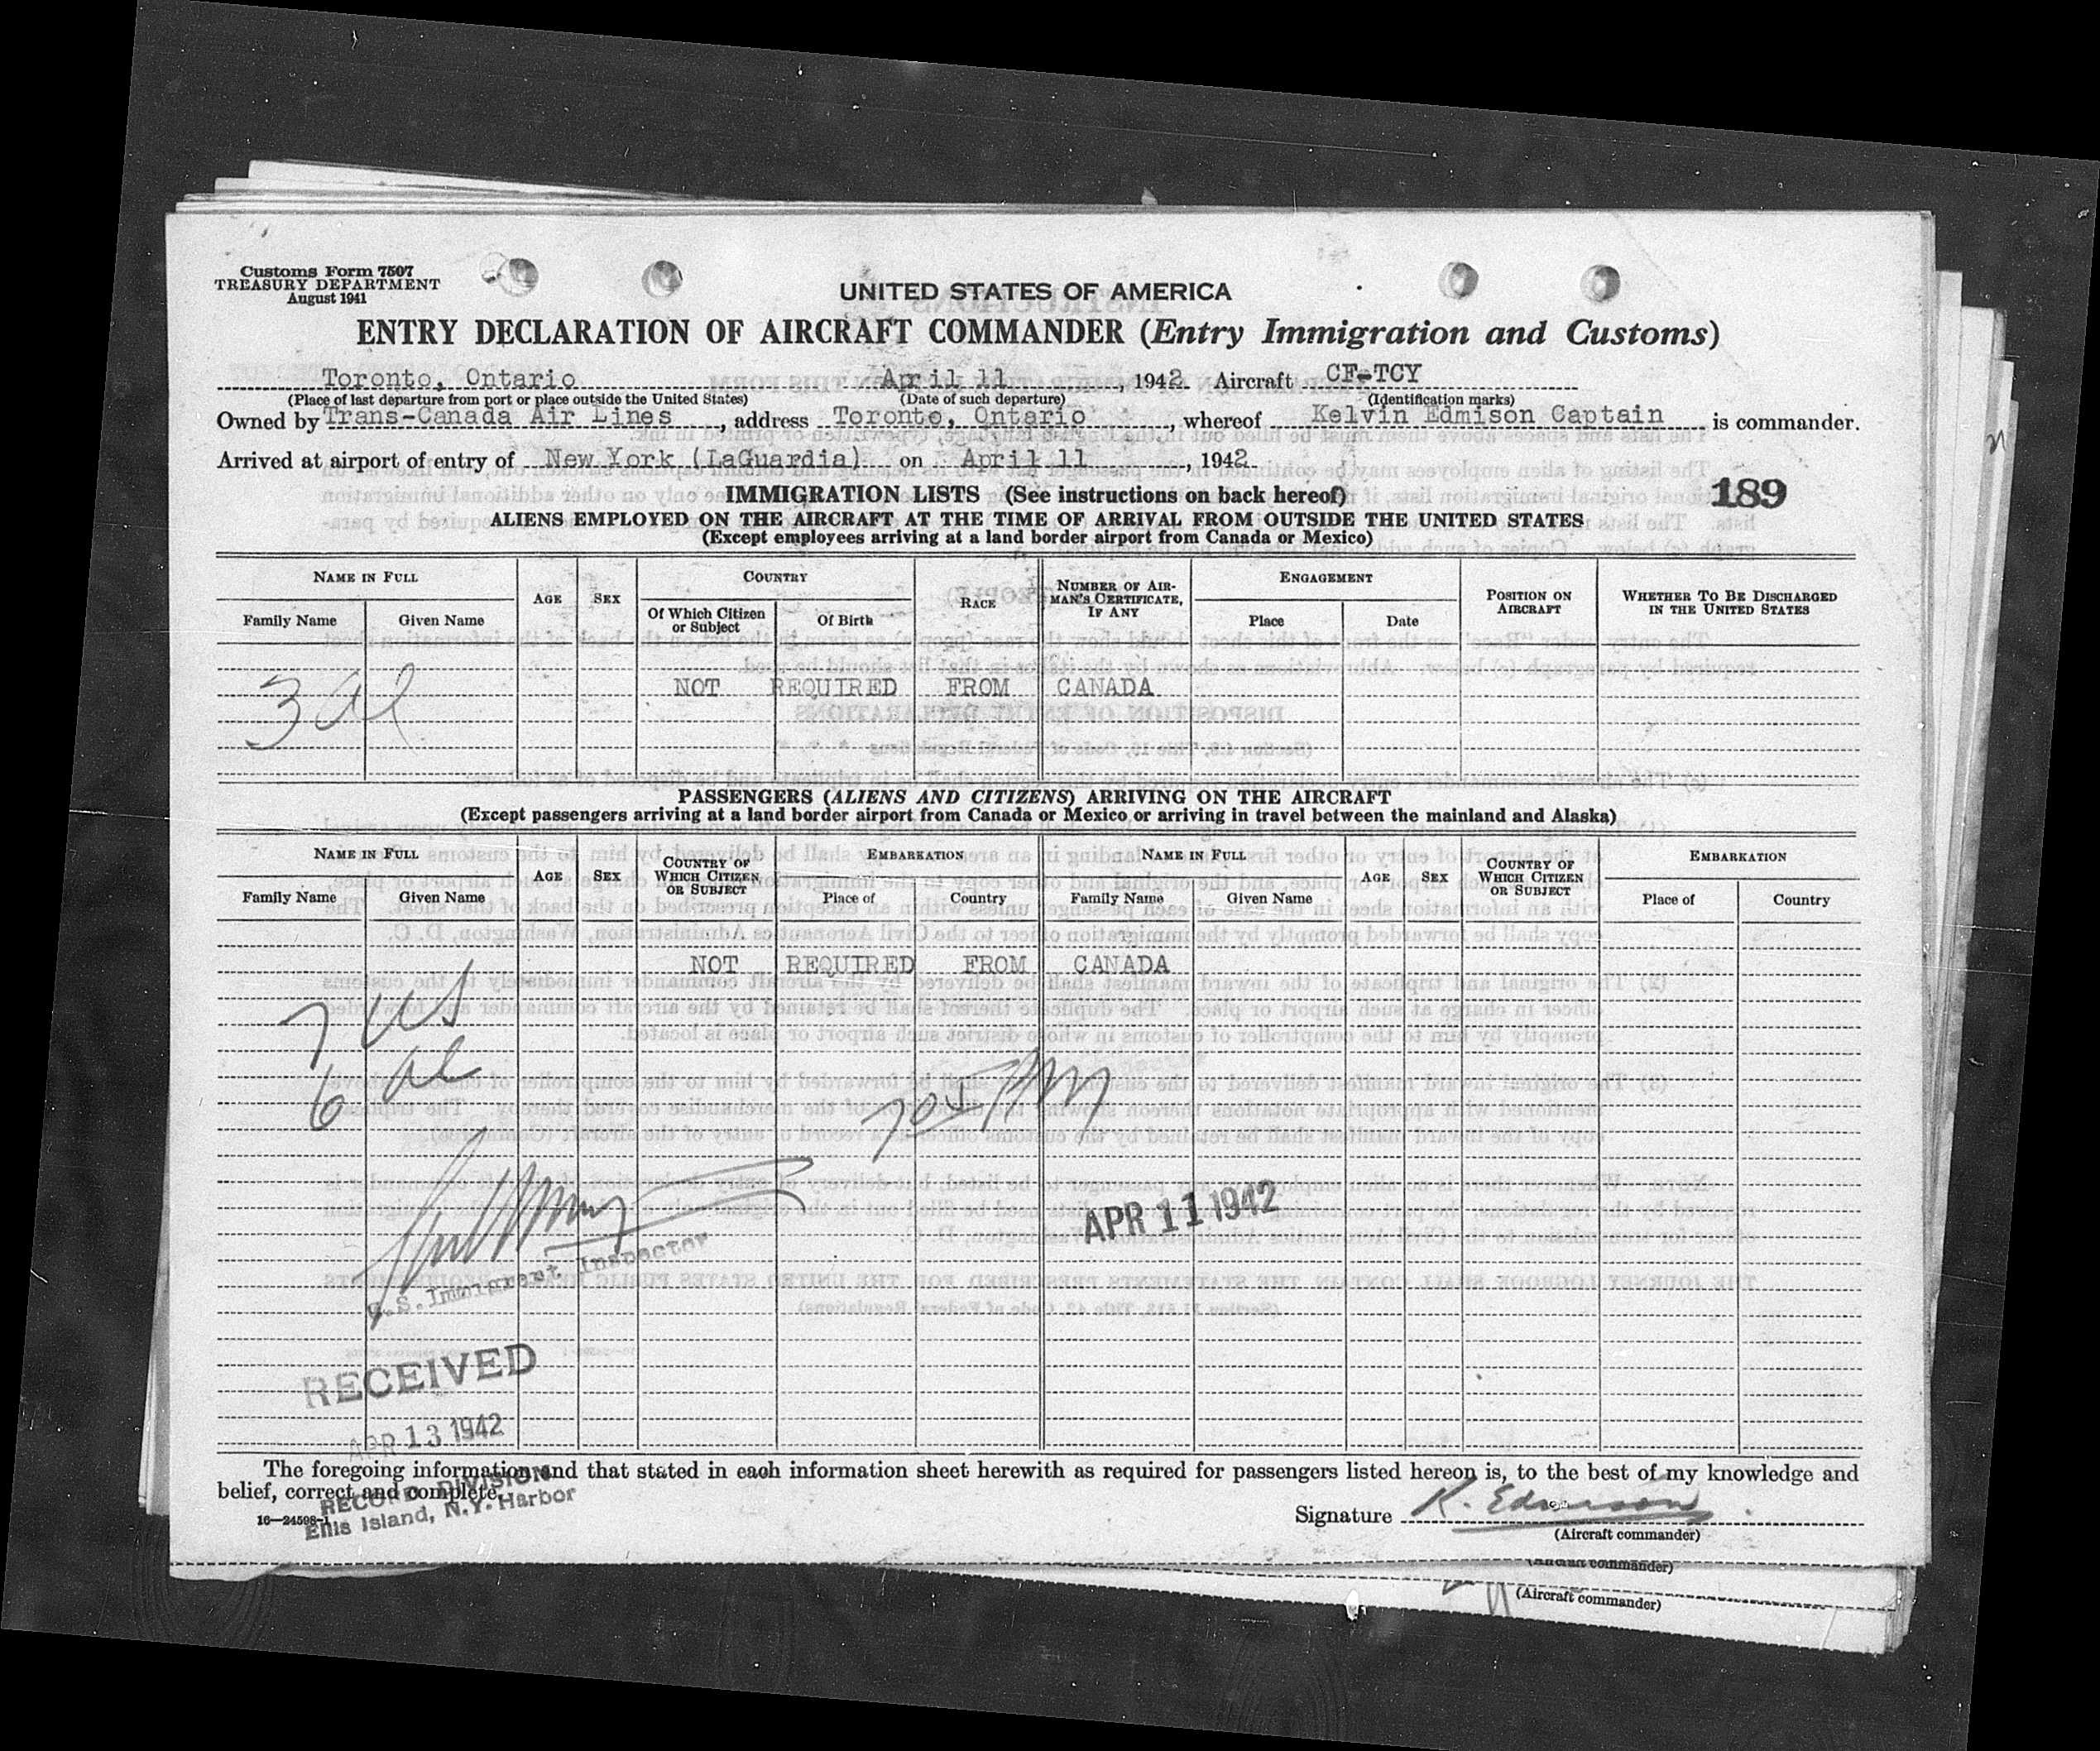 Customs Form 7507
TREASURY DEPARTMENT
August 1941
UNITED STATES OF AMERICA
ENTRY DECLARATION OF AIRCRAFT COMMANDER (Entry Immigration and Customs)
Toronto, Ontario April 11, 1942 Aircraft CF-TCY
(Place of last departure from port or place outside the United States) (Date of such departure) (Identification marks)
Owned by Trans-Canada Air Lines, address Toronto, Ontario, whereof Kelvin Edmison Captain is commander.
Arrived at airport of entry of New York (LaGuardia) on April 11, 1942
IMMIGRATION LISTS (See instructions on back hereof) 189
ALIENS EMPLOYED ON THE AIRCRAFT AT THE TIME OF ARRIVAL FROM OUTSIDE THE UNITED STATES
(Except employees arriving at a land border airport from Canada or Mexico)
NAME IN FULL AGE SEX COUNTRY RACE NUMBER OF AIRMAN'S CERTIFICATE, IF ANY ENGAGEMENT POSITION ON AIRCRAFT WHETHER TO BE DISCHARGED IN THE UNITED STATES
Family Name Given Name Of Which Citizen or Subject Of Birth Place Date
3 al
NOT REQUIRED FROM CANADA
PASSENGERS (ALIENS AND CITIZENS) ARRIVING ON THE AIRCRAFT
(Except passengers arriving at a land border airport from Canada or Mexico or arriving in travel between the mainland and Alaska)
NAME IN FULL AGE SEX COUNTRY OF WHICH CITIZEN OR SUBJECT EMBARKATION NAME IN FULL AGE SEX COUNTRY OF WHICH CITIZEN OR SUBJECT EMBARKATION
Family Name Given Name Place of Country Family Name Given Name Place of Country
NOT REQUIRED FROM CANADA
7 US
6 al
APR 11 1942
U.S. Immigrant Inspector
RECEIVED
APR 13 1942
RECORD DIVISION
Ellis Island, N.Y. Harbor
The foregoing information and that stated in each information sheet herewith as required for passengers listed hereon is, to the best of my knowledge and
belief, correct and complete.
16—24598-1
Signature K. Edmison
(Aircraft commander)
(Aircraft commander)
(Aircraft commander)